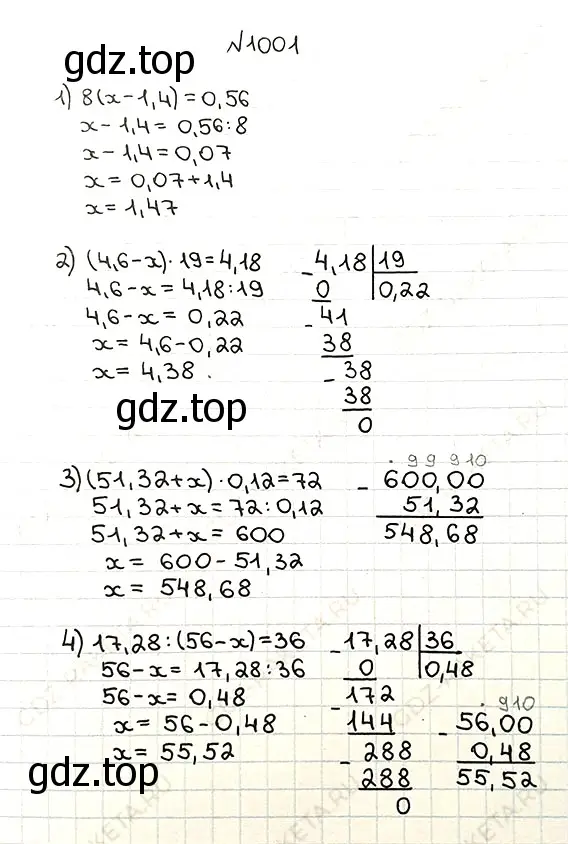 №1001
gdz.top
1) 8(x-1,4)=0,56
x-1,4=0,56:8
x-1,4=0,07
x=0,07+1,4
x=1,47
2) (4,6-x)·19=4,18
4,6-x=4,18:19
4,6-x=0,22
x=4,6-0,22
x=4,38.
-4,18|19
0 |0,22
-41
38
-38
38
0
gdz.top
3) (51,32+x)·0,12=72
51,32+x=72:0,12
51,32+x=600
x=600-51,32
x=548,68
. 9 9 9 10
-600,00
51,32
548,68
4) 17,28:(56-x)=36
56-x=17,28:36
56-x=0,48
x=56-0,48
x=55,52
-17,28|36
0 |0,48
-172
144
-288
288
0
. 9 10
-56,00
0,48
55,52
gdz.top